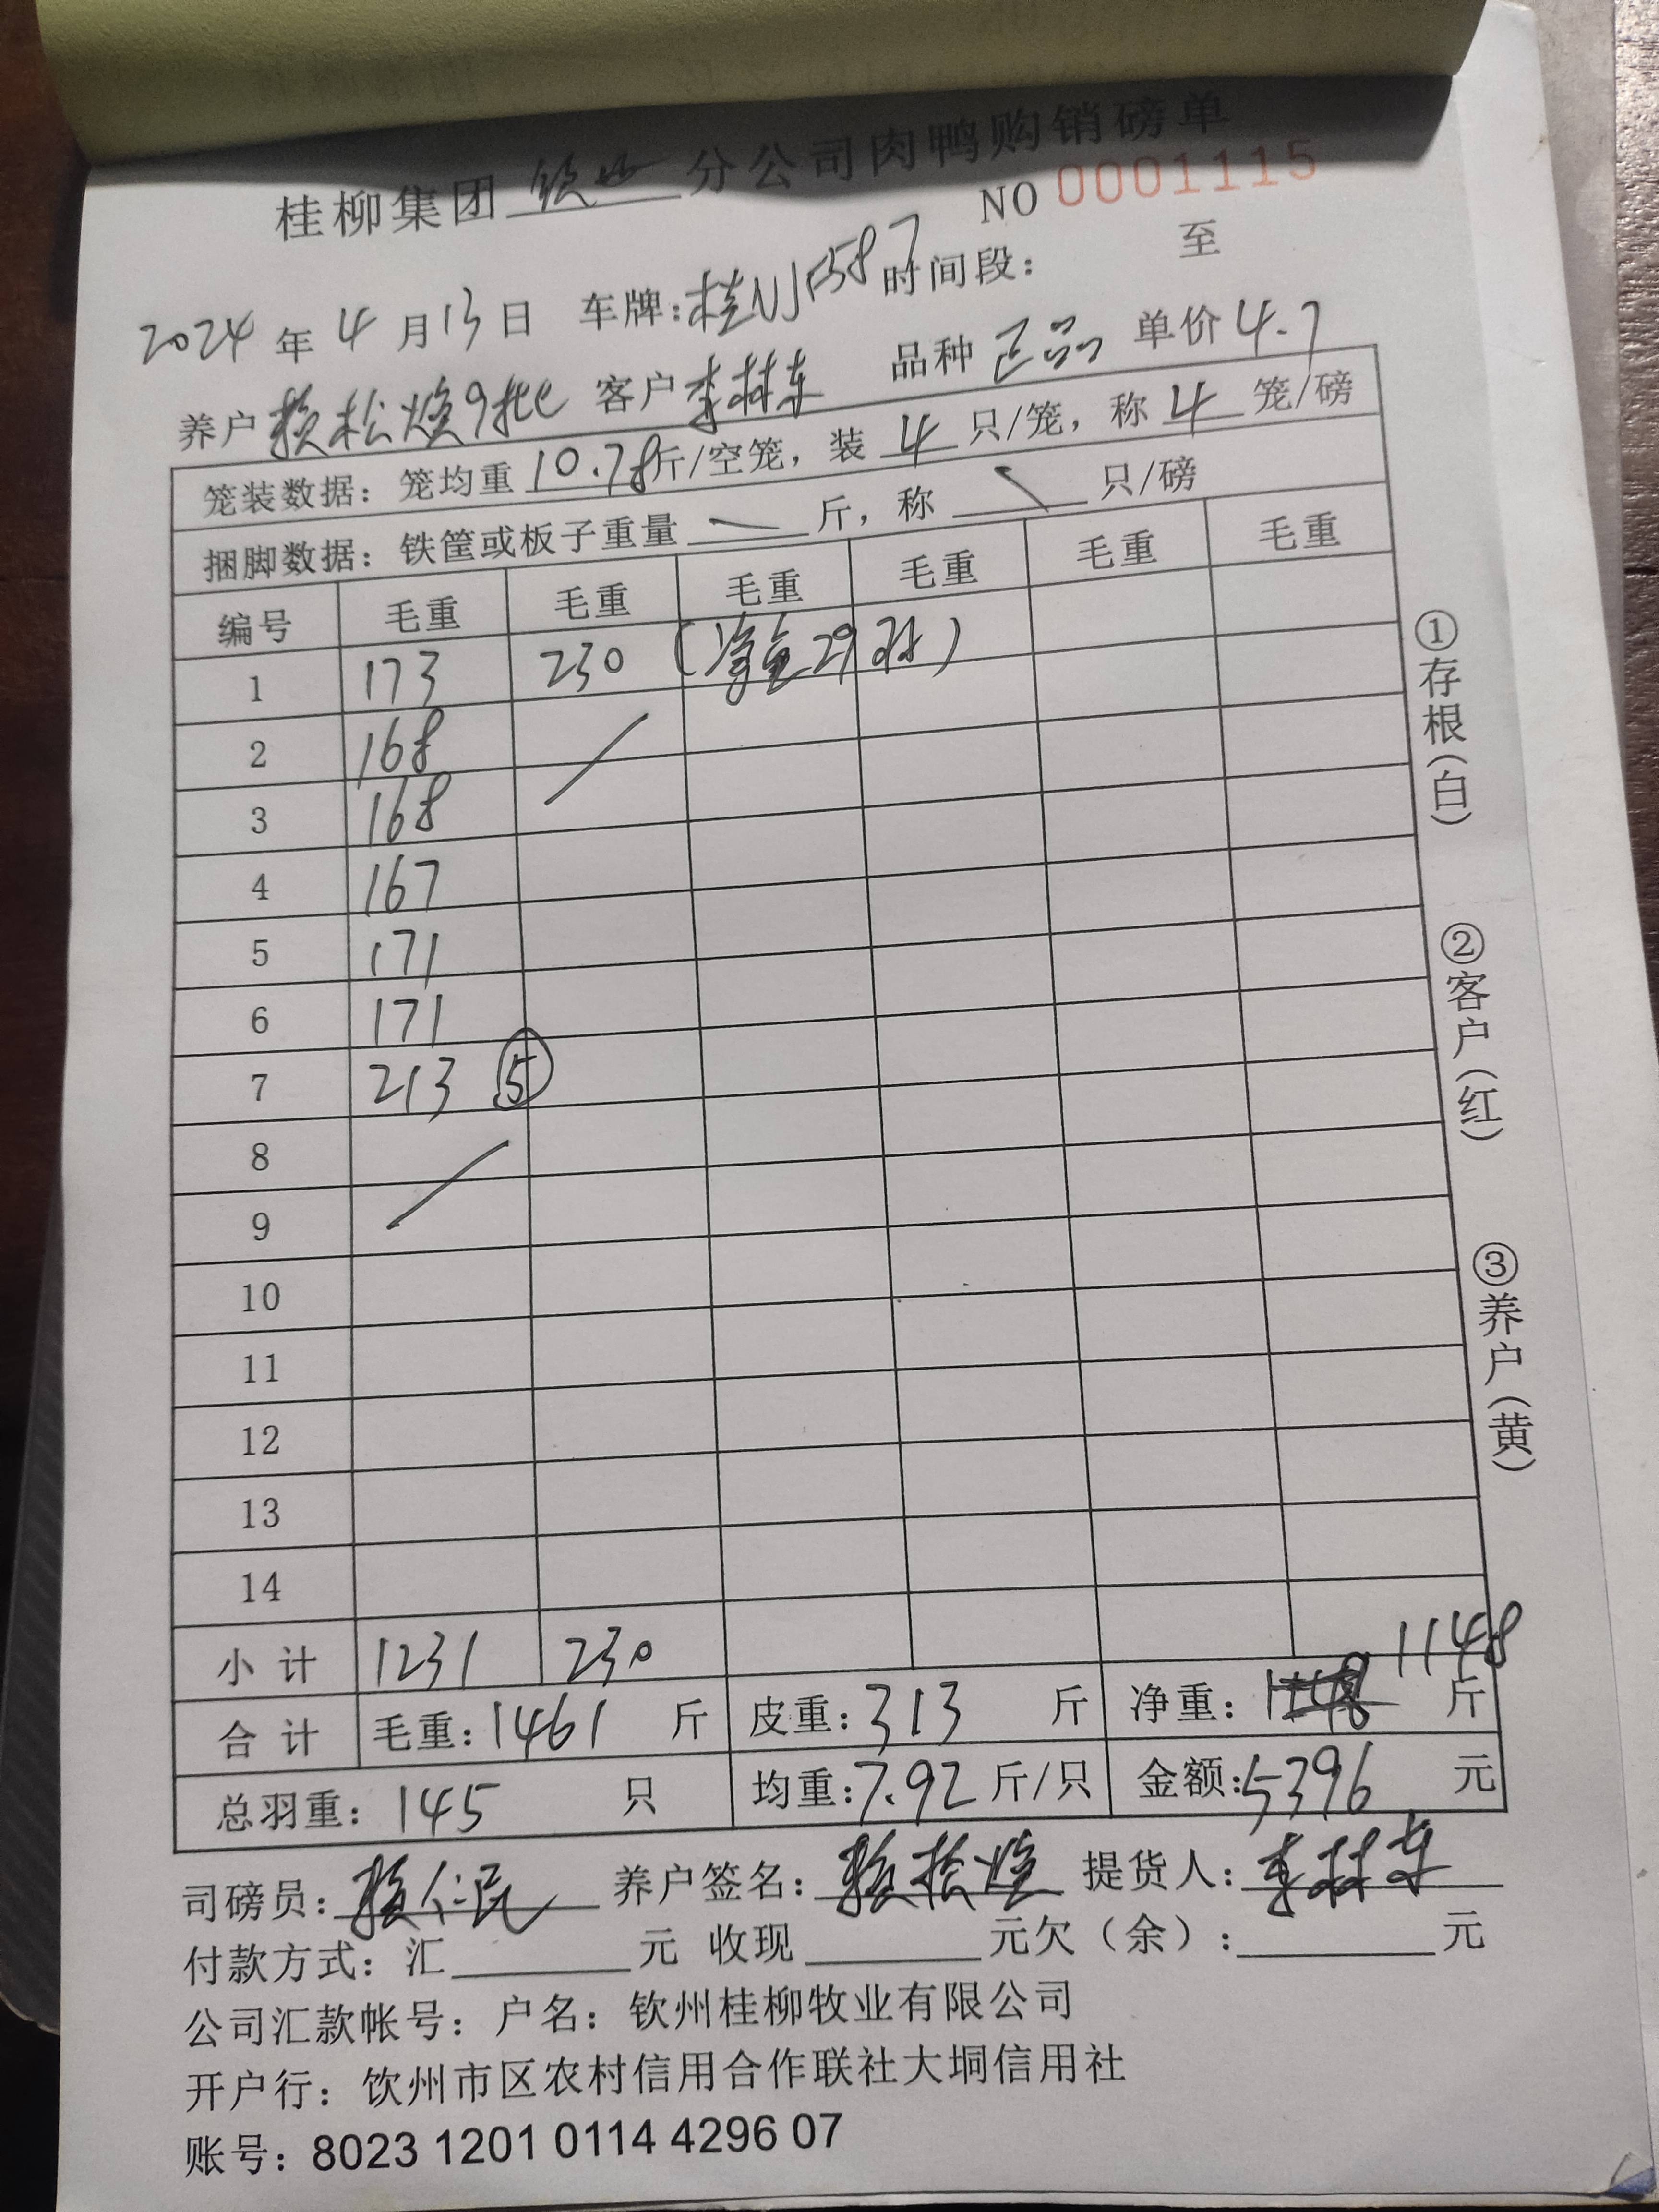 桂柳集团 钦州 分公司肉鸭购销磅单
NO 0001115
2024 年 4 月 13 日 车牌:桂NJF587 时间段: 至
养户 赖松焕9批 客户 李林东 品种 正品 单价 4.7
笼装数据: 笼均重 10.78 斤/空笼, 装 4 只/笼, 称 4 笼/磅
捆脚数据: 铁筐或板子重量 斤, 称 只/磅
编号 毛重 毛重 毛重 毛重 毛重 毛重
1 173 230 (净重29只)
2 168
3 168
4 167
5 171
6 171
7 213 ⑤
8
9
10
11
12
13
14
小 计 1231 230
1148
合 计 毛重:1461 斤 皮重:313 斤 净重: 斤
总羽重: 145 只 均重:7.92 斤/只 金额:5396 元
司磅员: 赖仁民 养户签名: 赖松焕 提货人: 李林东
付款方式: 汇 元 收现 元欠(余): 元
公司汇款帐号: 户名: 钦州桂柳牧业有限公司
开户行: 钦州市区农村信用合作联社大垌信用社
账号: 8023 1201 0114 4296 07
①存根(白)
②客户(红)
③养户(黄)